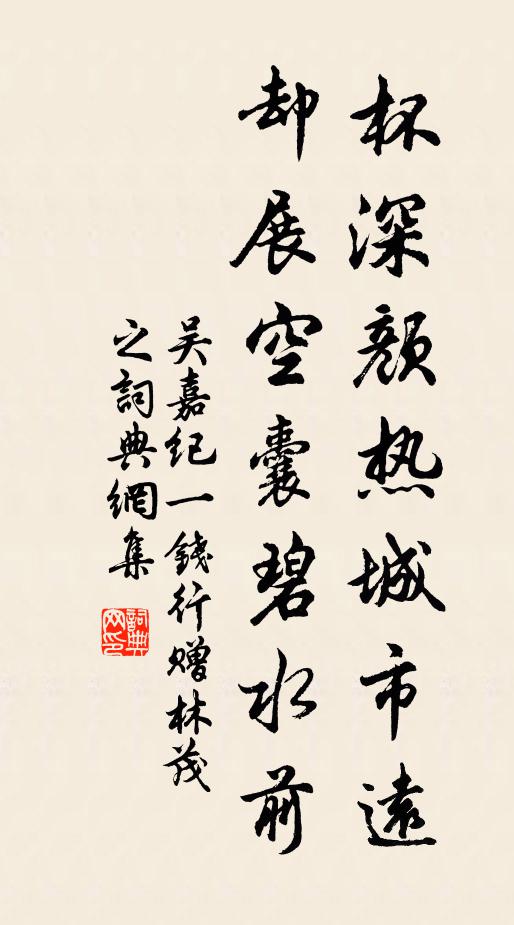 杯深顏热城市遠
却展空囊碧水前
吴嘉纪一錢行赠林茂
之詞典網集
詞典網印